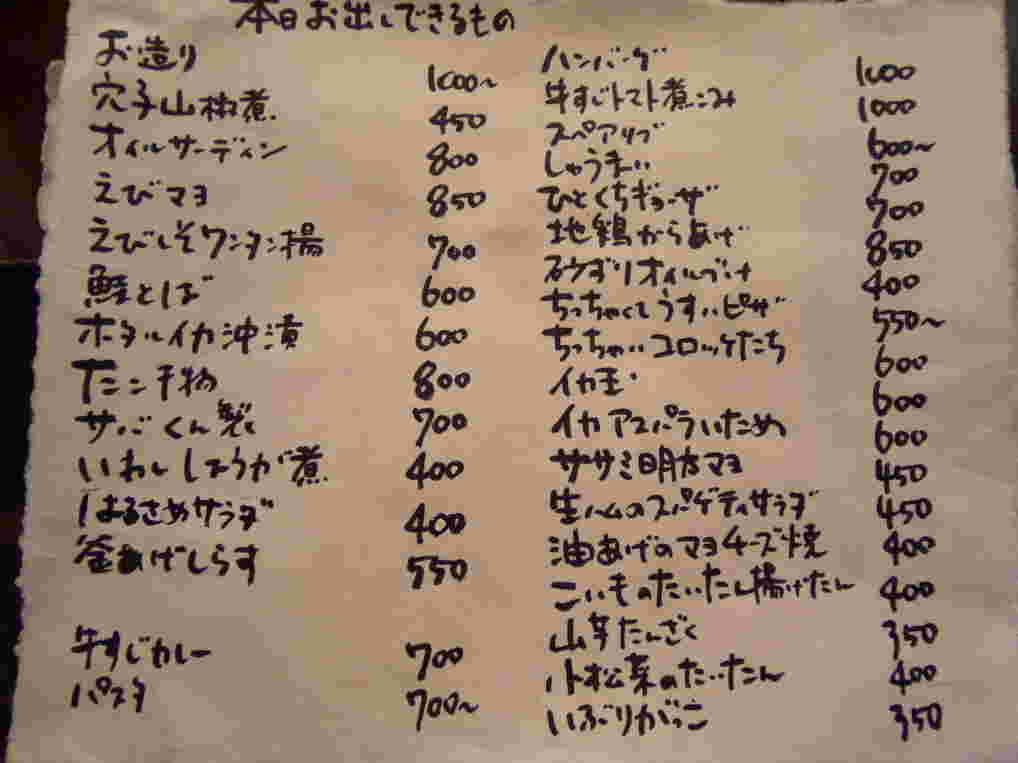 本日お出しできるもの
お造り 1000~
穴子山椒煮 450
オイルサーディン 800
えびマヨ 850
えびしそワンタン揚 700
鮭とば 600
ホタルイカ沖漬 600
たこ干物 800
サバくん製 700
いわしょうが煮 400
はるさめサラダ 400
釜あげしらす 550
牛すじカレー 700
パスタ 700~
ハンバーグ 1000
牛すじトマト煮こみ 1000
スペアリブ 600~
しゅうまい 700
ひとくちギョーザ 700
地鶏からあげ 850
砂ずりオイルづけ 400
ちっちゃくてうすいピザ 550~
ちっちゃいコロッケたち 600
イカ玉 600
イカアスパラいため 600
ササミ明太マヨ 450
生ハムのスパゲティサラダ 450
油あげのマヨチーズ焼 400
こいものたいたん揚げたん 400
山芋たんざく 350
小松菜のたいたん 400
いぶりがっこ 350